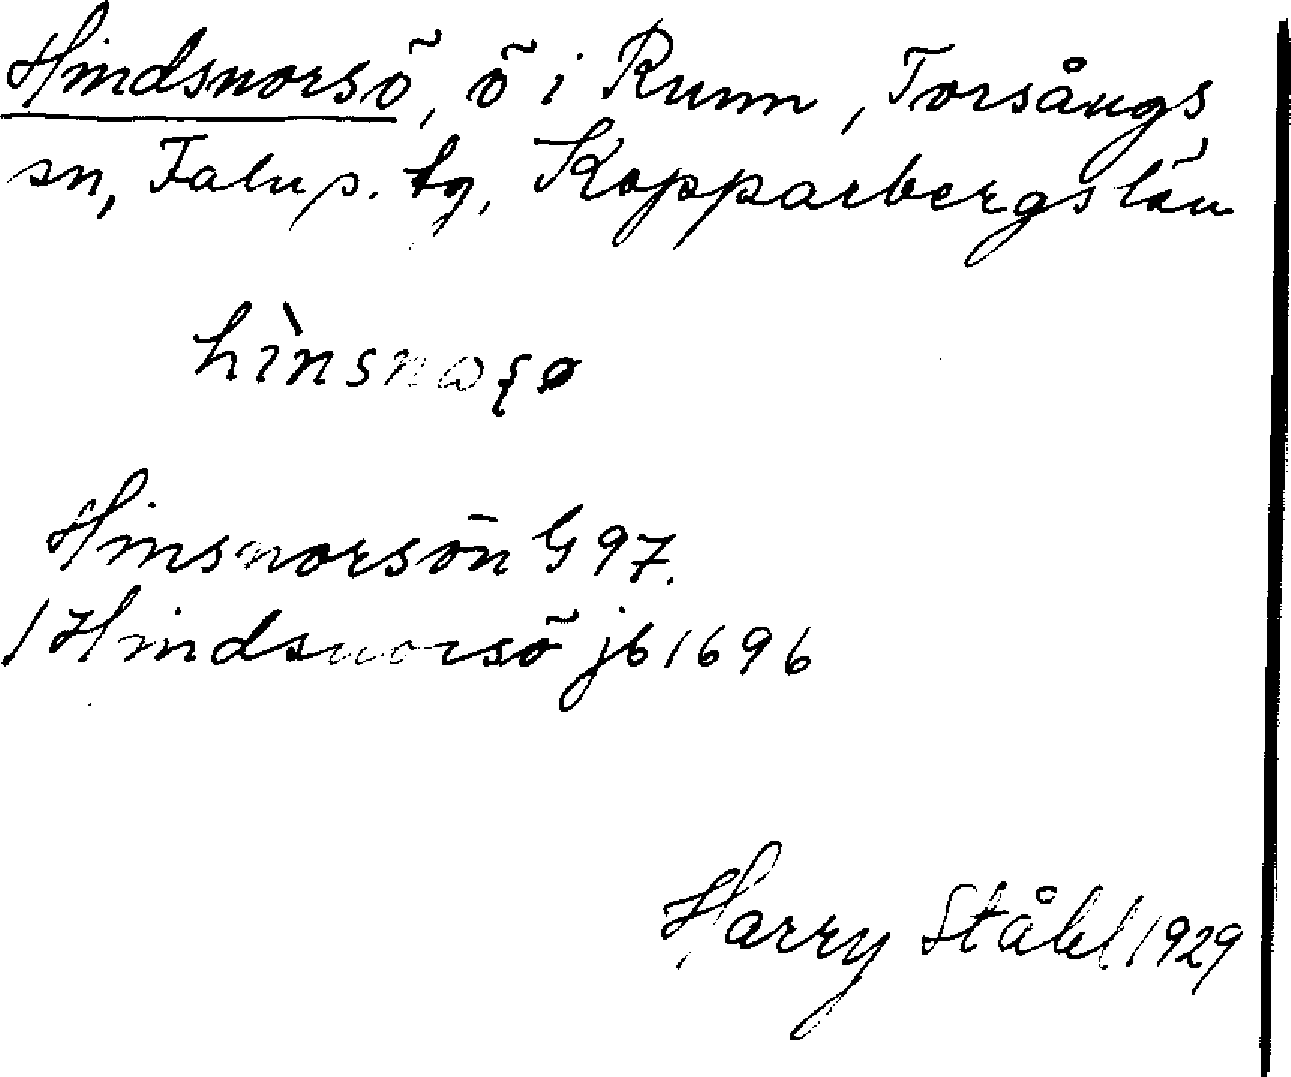 Hindsnorsö, ö i Runn, Torsångs
sn, Falu s. tg, Kopparbergs län
hìnsnωʂø
Hinsnorsön G 97.
/ Hindsnorsö jb 1696
Harry Ståhl 1929